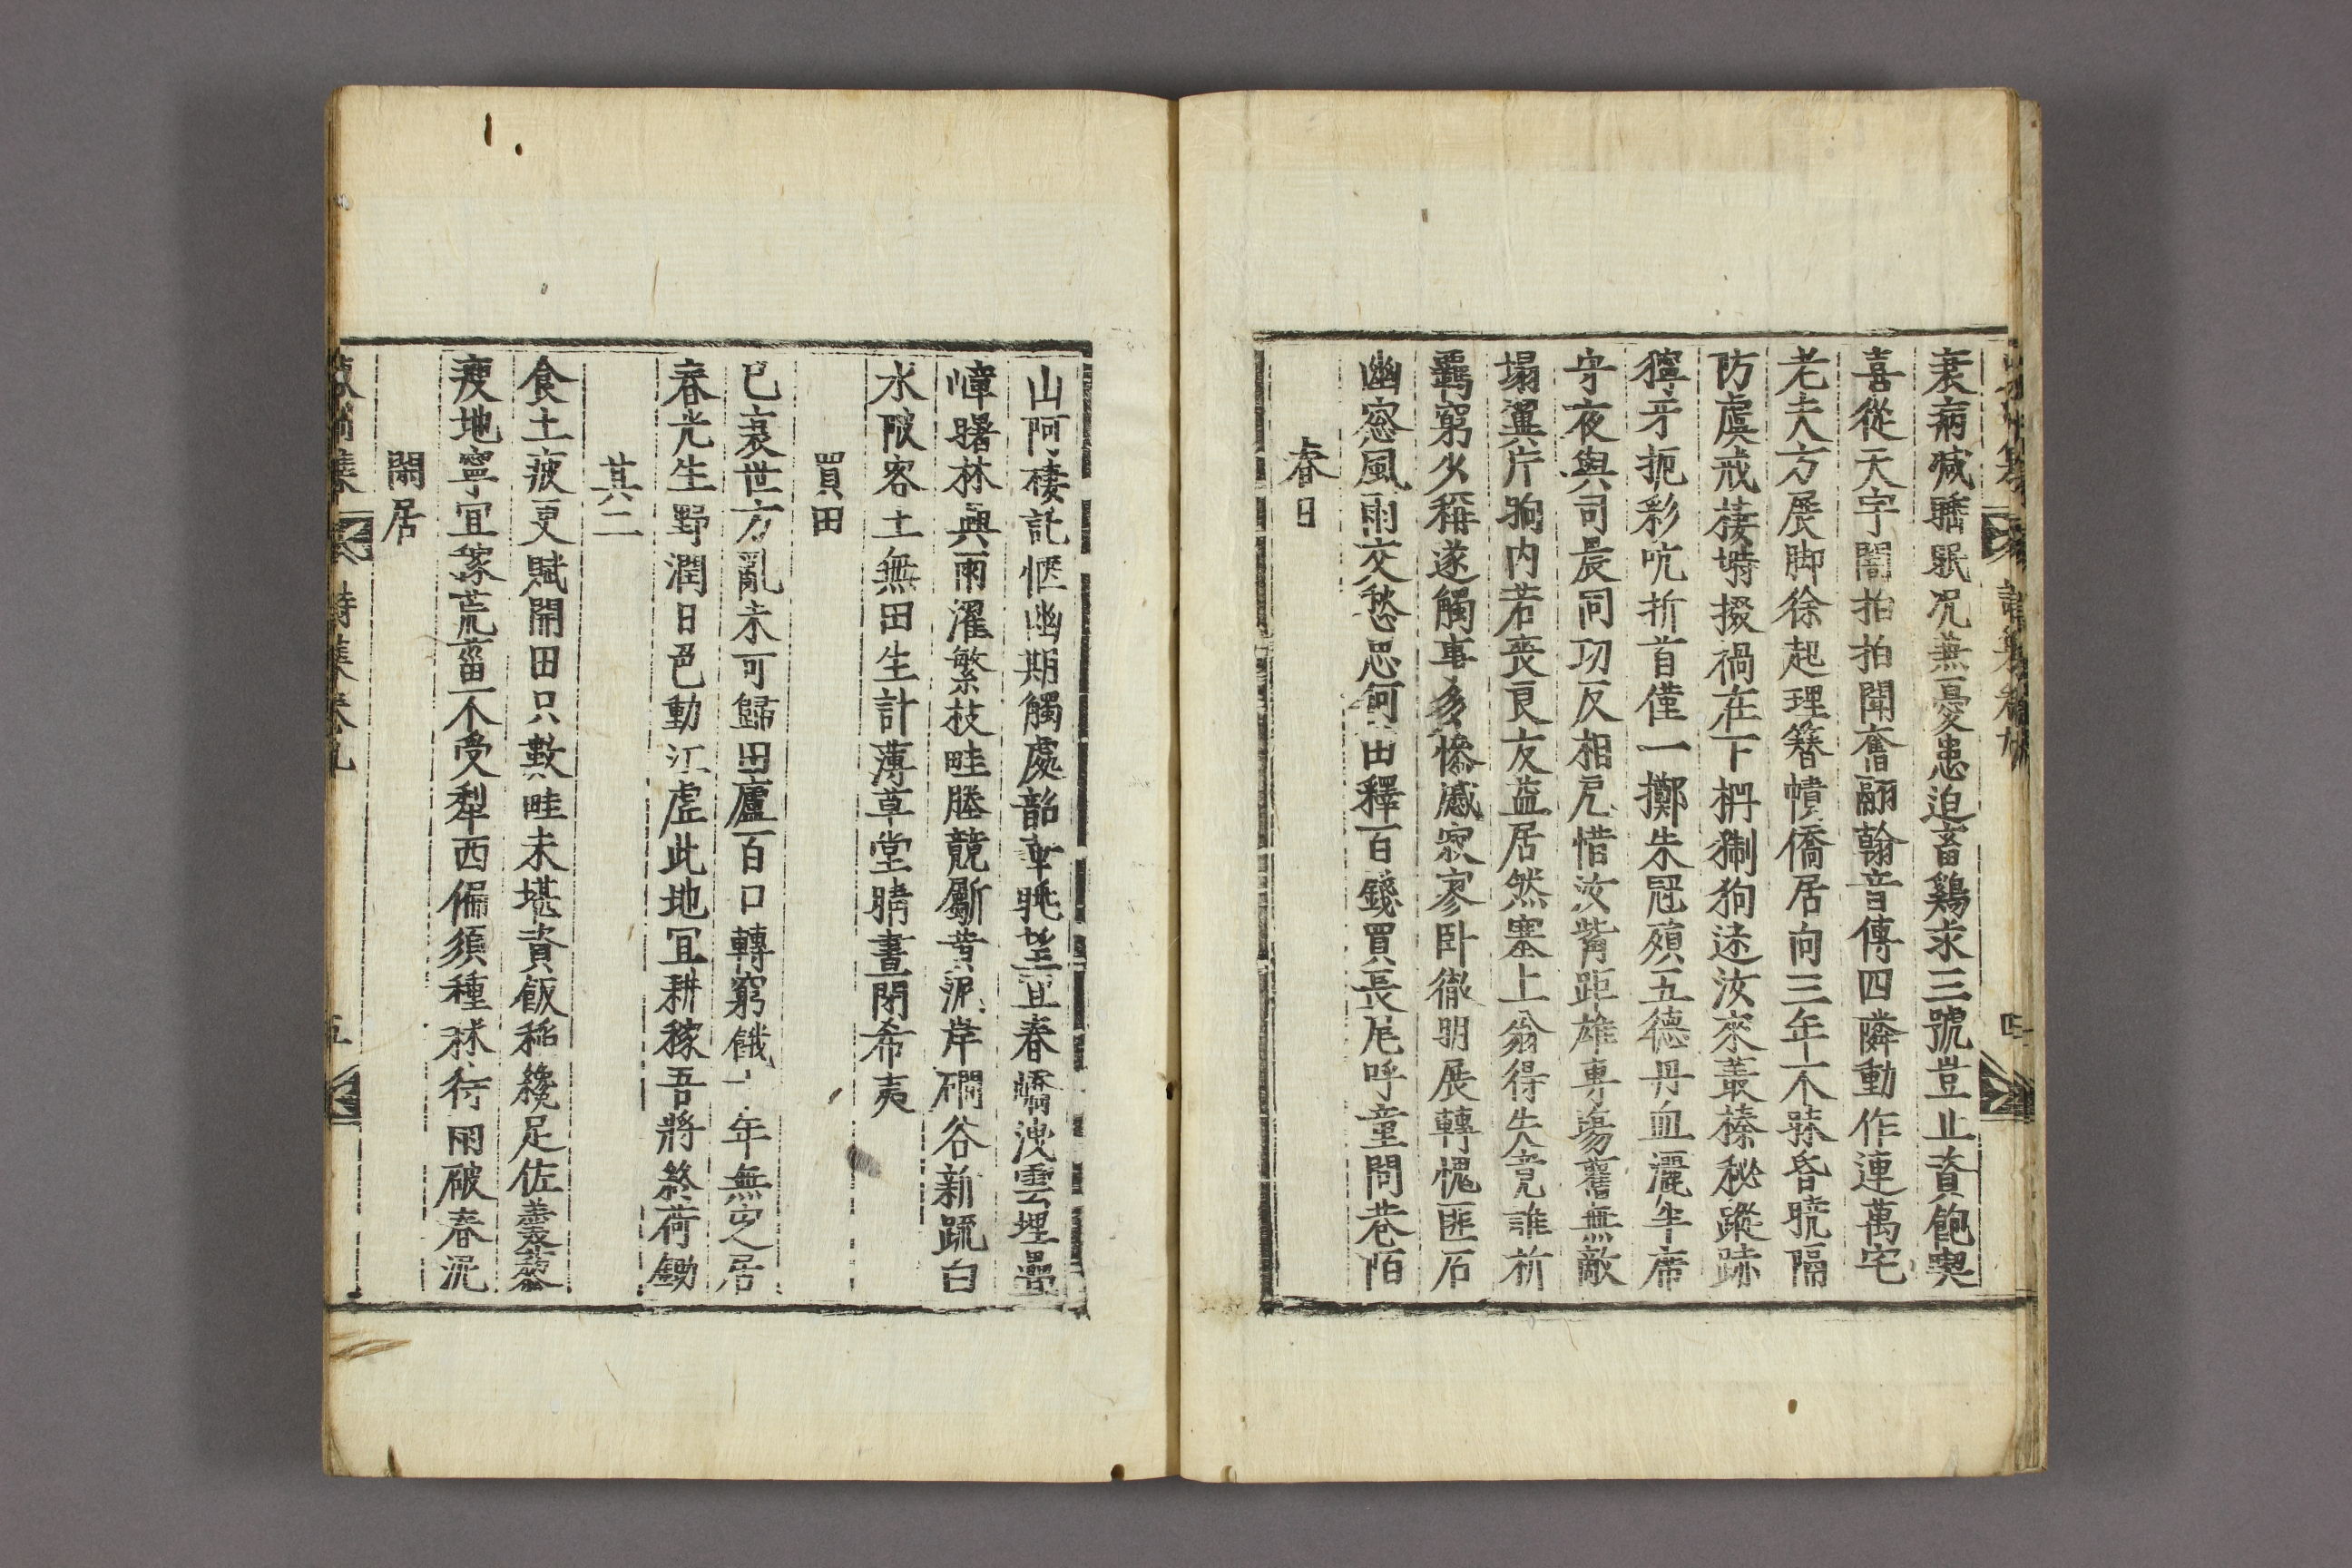 衰病喊驕眠况兼憂患迫畜鷄求三號豈止資飽喫
喜從天宇闇拍拍聞奮翮翰音傳四隣動作連萬宅
老夫方展脚徐起理簪幘僑居向三年不錄昏曉隔
防虞戒棲塒掇禍在下栅猘狗迷汝來叢榛秘蹤跡
獰牙扼彩吭折首僅一擲朱冠殞五德丹血灑半席
守夜與司晨同功反相厄惜汝觜距雄專場舊無敵
塌翼片狗内若喪良友益居然塞上翁得失竟誰析
羈窮少稱遂觸事多慘慼寂寥卧徹明展轉愧匪石
幽窓風雨交愁思何由釋百錢買長尾呼童問巷陌
春日
山阿棲託愜幽期觸處韶華眺望宜春嶠洩雲埋疊
嶂曙林興雨濯繁枝畦塍競斸黄泥岸磵谷新疏白
水陂客土無田生計薄草堂晴晝閉希夷
買田
已衰世方亂未可歸田廬百口轉窮餓年無定居
春光生野潤日色動江虛此地宜耕稼吾將終荷鋤
其二
食土疲更賦開田只數畦未堪資飯稻纔足佐羹藜
瘦地寧宜稼荒菑不受犁西偏須種秫待雨破春泥
閒居
詩集卷九
五
四